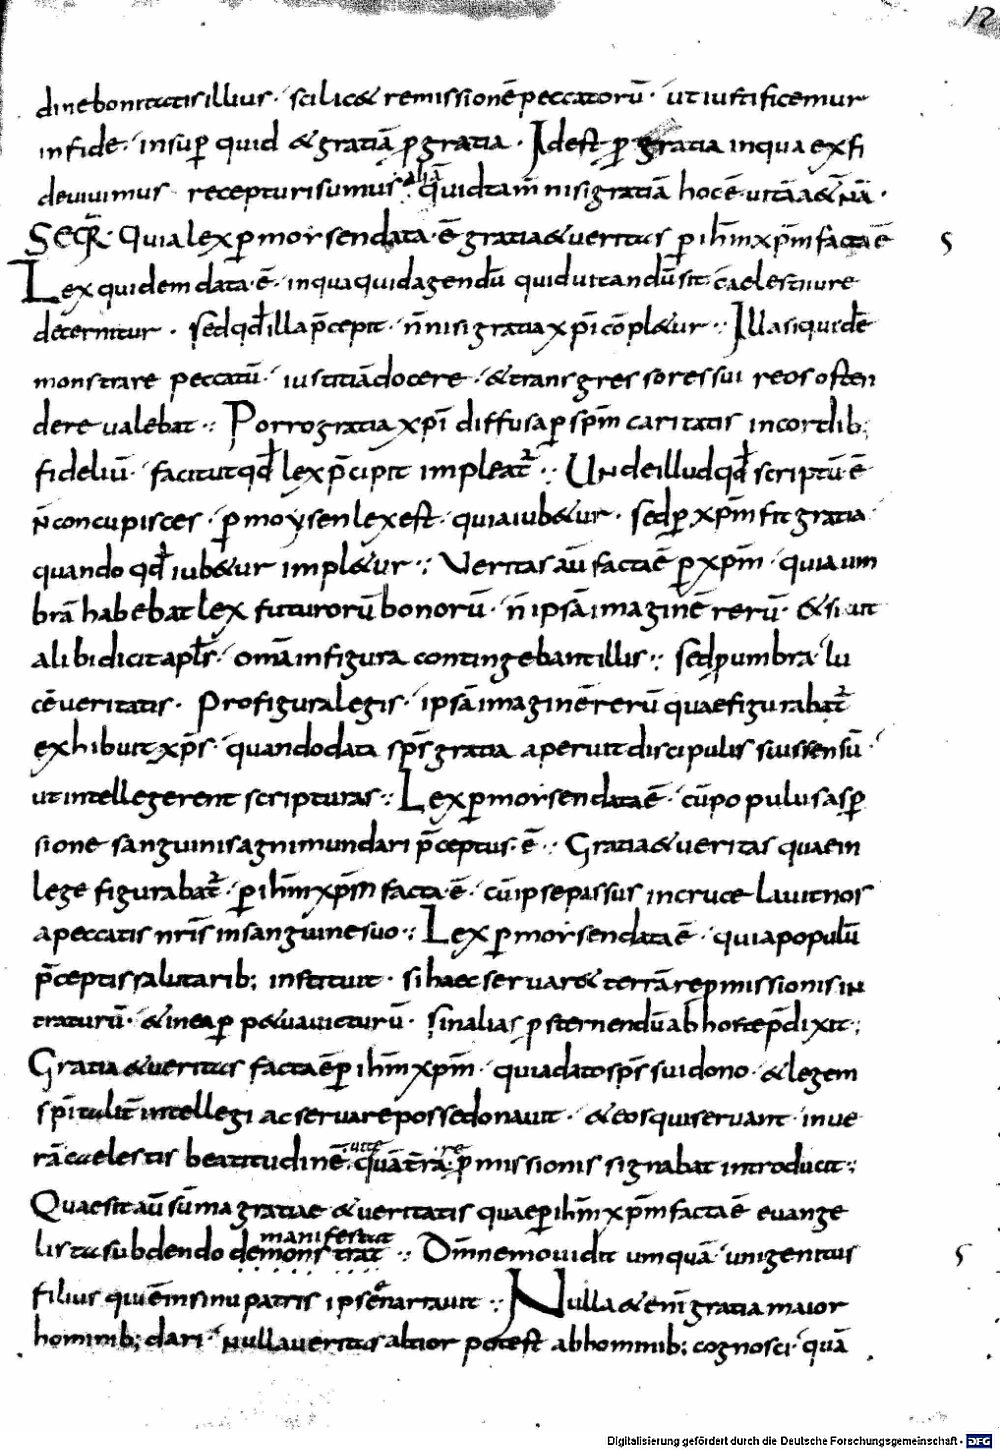 12
dinebonitatis illius · scilic& remissionē peccatorū · ut iustificemur
in fide · insup̄ quid & gratiā p̄ gratia · Idest p̄ gratia in qua ex fi
de vivimus recepturi sumus aliā quidtam̄ nisi gratiā hoc ē uitā a&ernā ·
SEQR̄ · Quia lex p̄ moysen data · ē gratia & ueritas p̄ ihm̄ xp̄m facta ē
Lex quidem data · ē · in qua quid agendū quid uitandū sit · caelesti iure
decernitur · sed qđ illa p̄cepit · n̄ nisi gratia xp̄i cōpl&ur ·: Illa siquidē
monstrare peccatū · iustitiā docere · & transgressores sui reos osten
dere ualebat ·: Porro gratia xp̄i diffusa p̄ sp̄m caritatis in cordib;
fideliū · facit ut qđ lex p̄cipit impleat᷑ ·: Unde illud qđ scriptū ē
N̄ concupisces · p̄ moysen lex est · quia iub&ur · sed p̄ xp̄m fit gratia
quando qđ iub&ur impl&ur ·: Veritas aū facta ē p̄ xp̄m · quia um
brā habebat lex futurorū bonorū · n̄ ipsā imaginē rerū · & sicut
alibi dicit apl̄s · om̄a in figura contingebant illis ·: sed p̄ umbra · lu
cē ueritatis · Pro figura legis · ipsā imaginē rerū quae figurabat᷑
exhibuit xp̄s · quando data sp̄s gratia aperuit discipulis suis sensū ·
ut intellegerent scripturas ·: Lex p̄ moysen data ē · cū populus asp̄
sione sanguinis agni mundari p̄ceptus · ē ·: Gratia & ueritas quae in
lege figurabat᷑ · p̄ ihm̄ xp̄m facta · ē · cū ipse passus in cruce lauit nos
a peccatis nr̄is in sanguine suo ·: Lex p̄ moysen data ē · quia populū
p̄ceptis salutarib; instituit · si haec seruar& terrā repmissionis in
traturū · & in ea p̄p&ua uicturū · sin alias p̄sternendū ab hoste p̄dixit ·;
Gratia & ueritas facta ē p̄ ihm̄ xp̄m · quia dato sp̄s sui dono · & legem
sp̄italit̄ intellegi ac seruare posse donauit · & eos qui seruant · in ue
rā caelestis beatitudinē uitē quā t̄ra re p̄missionis signabat introducit ·;
Quae sit aū sūma gratiae & ueritatis quae p̄ ihm̄ xp̄m facta ē euange
manifestat
lista subdendo demonstrat ·: Dm̄ nemo uidit umquā · unigenitus
filius qui ē in sinu patris ipse enarrauit ·: Nulla & eni gratia maior
hominib; dari · nulla ueritas altior potest ab hominib; cognosci · quā
Digitalisierung gefördert durch die Deutsche Forschungsgemeinschaft - DFG